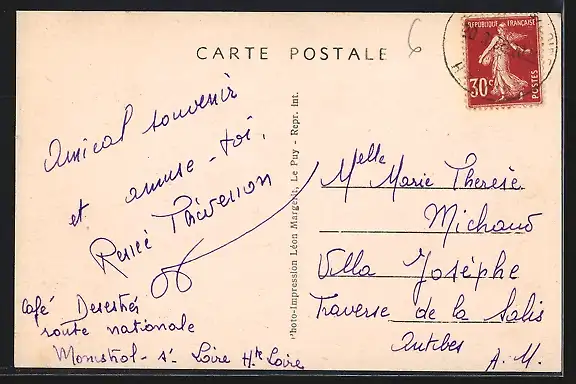 CARTE POSTALE
6
REPUBLIQUE FRANÇAISE
30 c
POSTES
Amical souvenir
et amuse-toi.
Renée
Café
route nationale
Monistrol-s-Loire Hte Loire
Photo-Impression Léon Margerit, Le Puy - Repr. int.
Melle Marie Therese
Michaud
Villa Josèphe
Traverse de la Salis
Antibes
A.M.